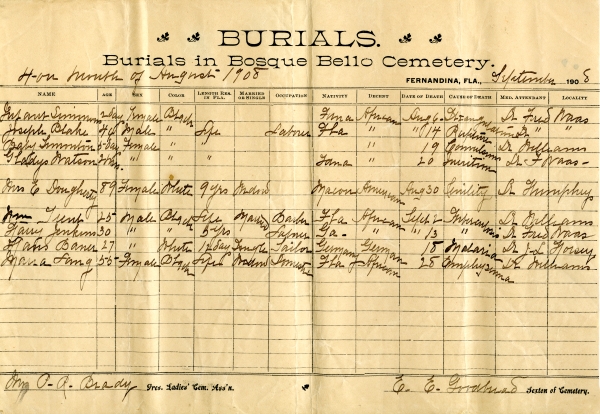 BURIALS.
Burials in Bosque Bello Cemetery.
For month of August 1908 FERNANDINA, FLA., September 1908
NAME AGE SEX COLOR LENGTH RES. IN FLA. MARRIED OR SINGLE OCCUPATION NATIVITY DECENT DATE OF DEATH CAUSE OF DEATH MED. ATTENDANT LOCALITY
Infant Simmons 2 day Female Black Fdna African Aug 6 Dr Fred Waas
Joseph Blake 40 Male " Life Laborer Fla " " 14 Dr " "
Baby 5 day Female " " 19 Convulsions Dr Williams
Gladys Watson " Fdna " 20 Dr F Waas
Mrs E Dougherty 89 Female White 9 yrs Widow Macon American Aug 30 Senility Dr Humphreys
Wm 25 Male Black Life Married Barber Fla African Sept 2 Dr Williams
Harry Jenkins 30 " " 5 yrs Ga " " 13 Dr Fred Waas
Hans 27 " White 12 day Single Sailor Germany German 18 Malaria Dr J. L. Horsey
Maria Lang 55 Female Black Life Widow Domestic Fla African 28 Emphysema Dr Williams
Mrs P. A. Brady Pres. Ladies' Cem. Ass'n. E. E. Sexton of Cemetery.